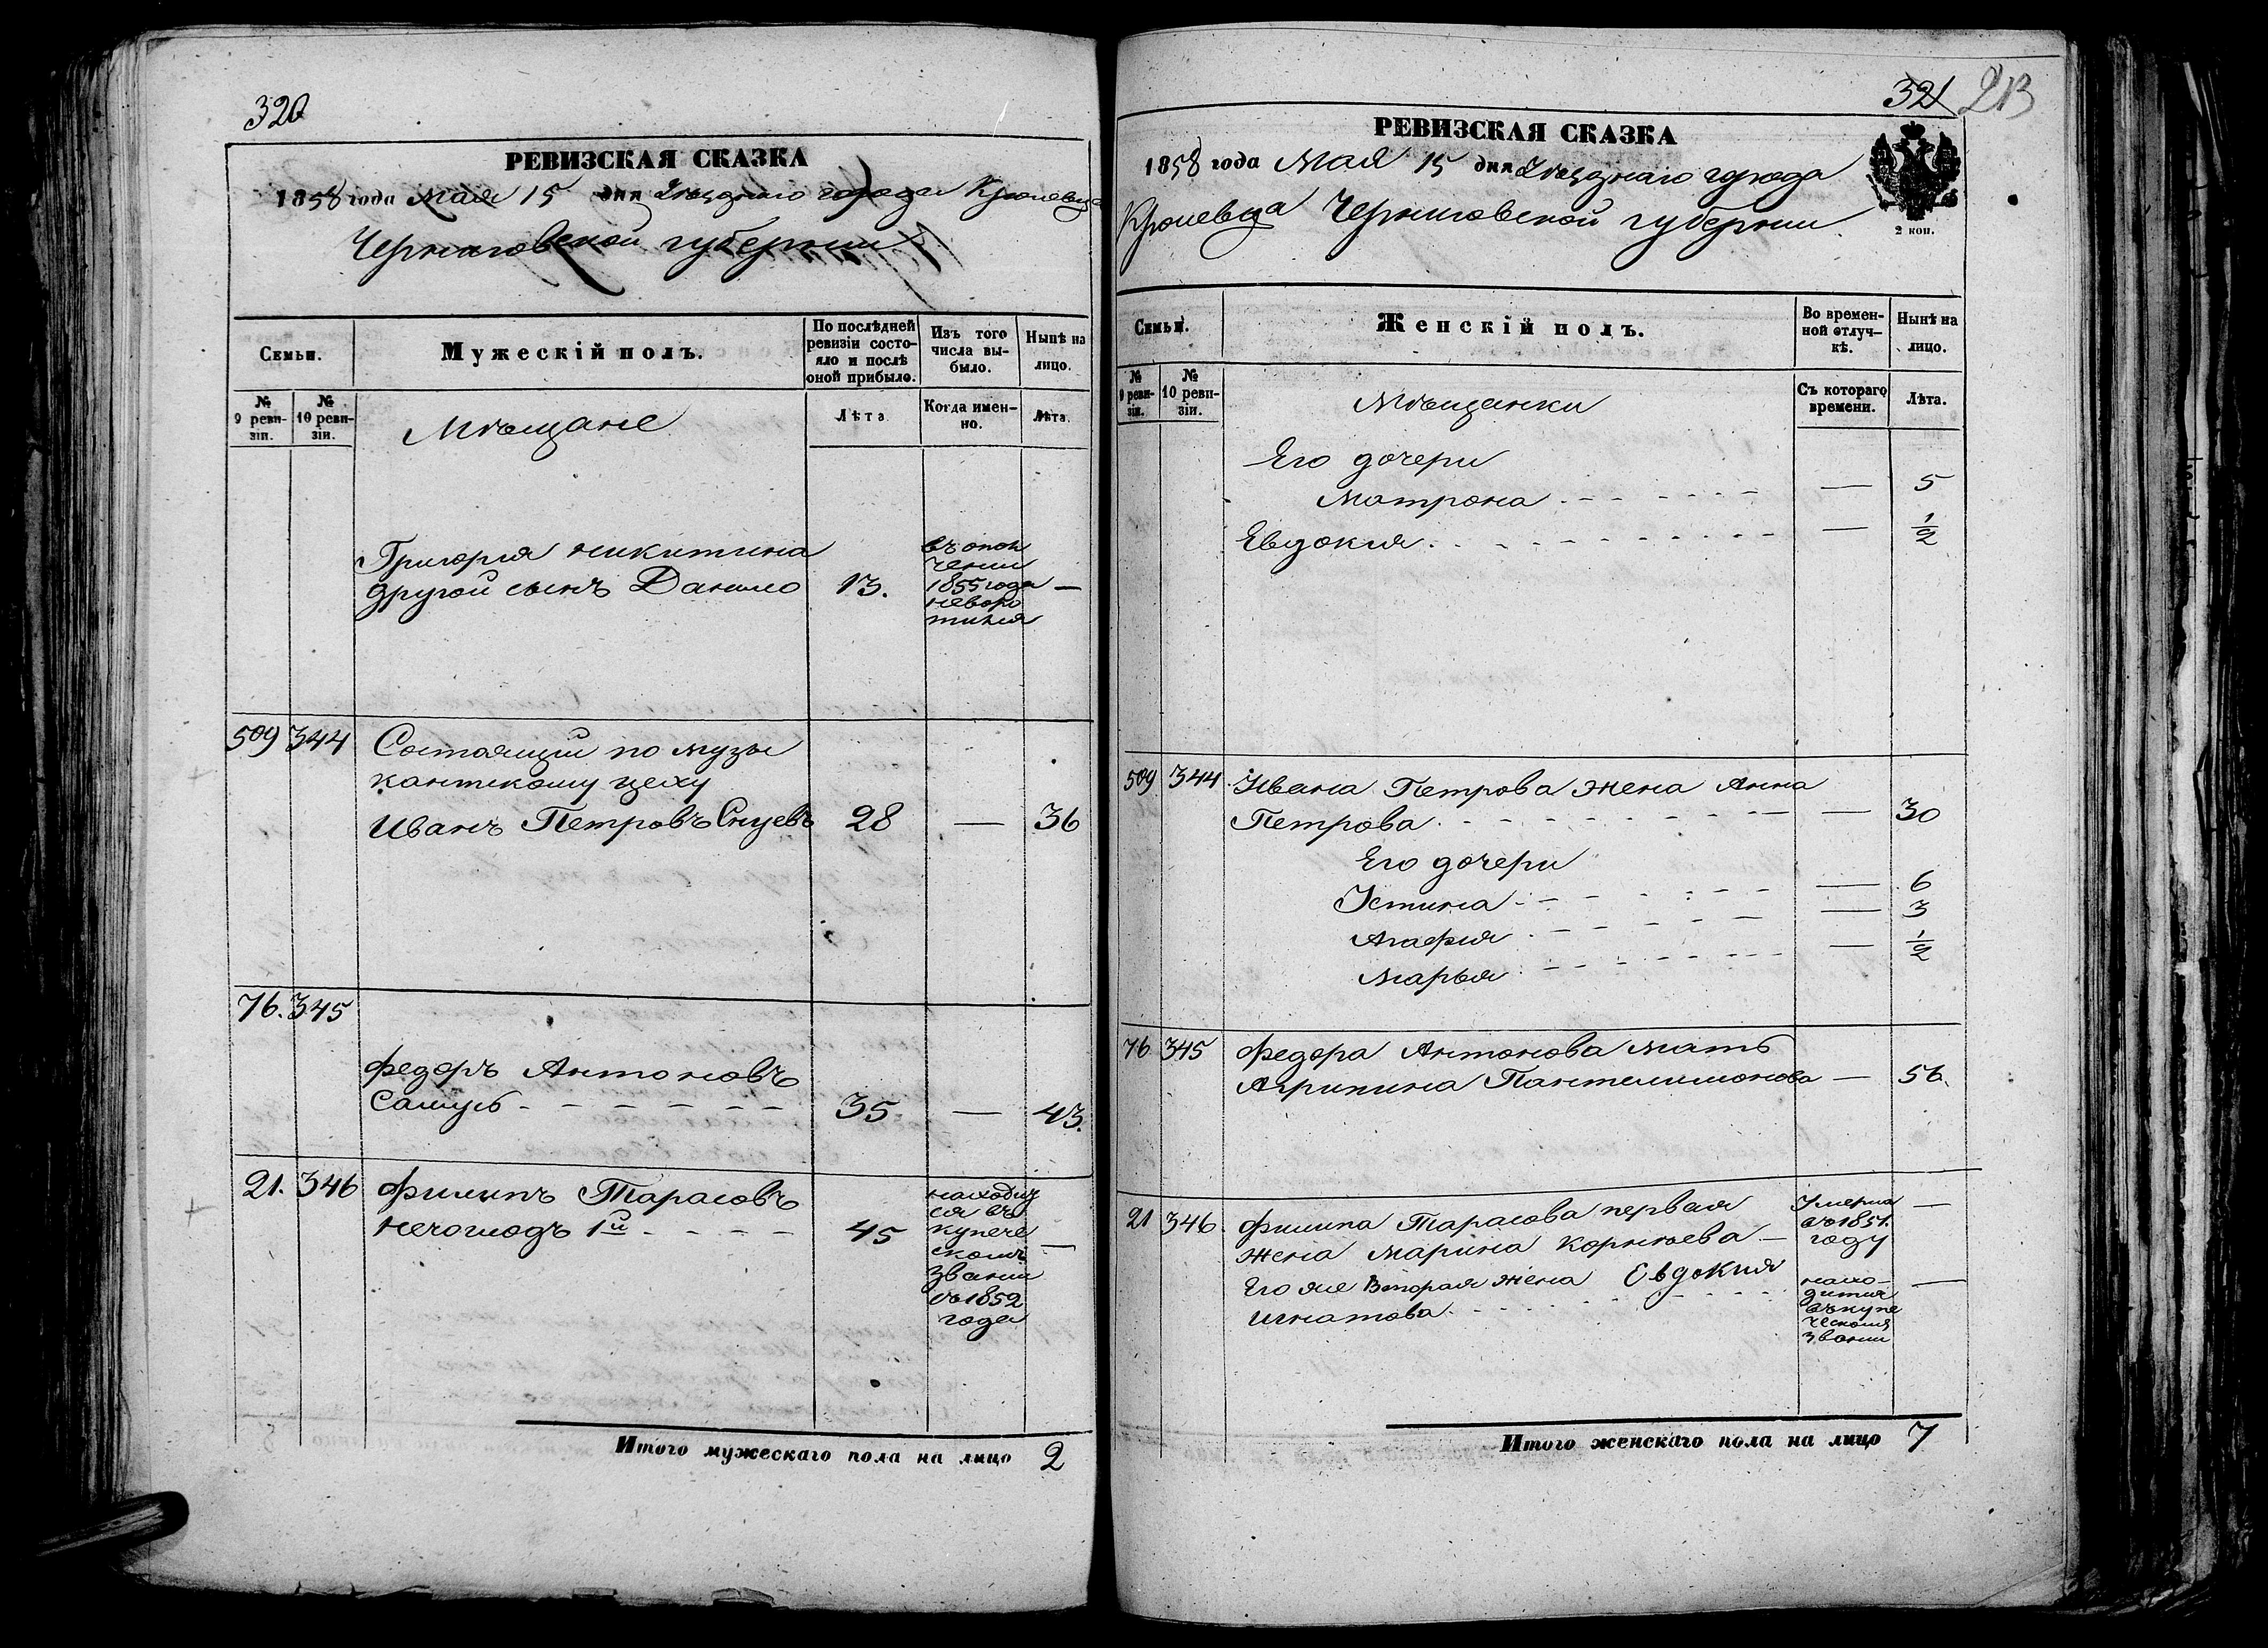 320
РЕВИЗСКАЯ СКАЗКА
1858 года Мая 15 дня Уѣзднаго города Кролевца
Черниговской губерніи
Семьи.
Мужескій полъ.
По послѣдней ревизіи состояло и послѣ оной прибыло.
Изъ того числа выбыло.
Нынѣ на лицо.
№ 9 ревизіи.
№ 10 ревизіи.
Мѣщане
Лѣта
Когда именно.
Лѣта.
Григорія Никитина
другой сынъ Данило 13.
въ опол
ченіи
1855 года —
509 344 Состоящій по музы
кантскому цеху
Иванъ Петровъ 28 — 36
76. 345
Федоръ Антоновъ
35 — 43.
21. 346 Филипъ Тарасовъ
1й 45
находит
ся въ
купече
скомъ —
званіи
съ 1852
года
Итого мужескаго пола на лицо 2
321 213
РЕВИЗСКАЯ СКАЗКА
1858 года Мая 15 дня Уѣзднаго города
Кролевца Черниговской губерніи
2 коп.
Семьи.
Женскій полъ.
Во временной отлучкѣ.
Нынѣ на лицо.
№ 9 ревизіи.
№ 10 ревизіи.
Мѣщанки
Съ котораго времени.
Лѣта.
Его дочери
Матрона — 5
Евдокия — 1/2
509 344 Ивана Петрова жена Анна
Петрова — 30
Его дочери
Устина — 6
Агафия — 3
Марья — 1/2
76 345 Федора Антонова мать
Агрипина Пантелимонова — 56.
21 346. Филипа Тарасова первая
жена Марина Корнѣева —
Умерла
въ 1851. —
году
Его же Вторая жена Евдокия
Игнатова
нахо-
дится —
въ купе
ческомъ
званіи
Итого женскаго пола на лицо 7